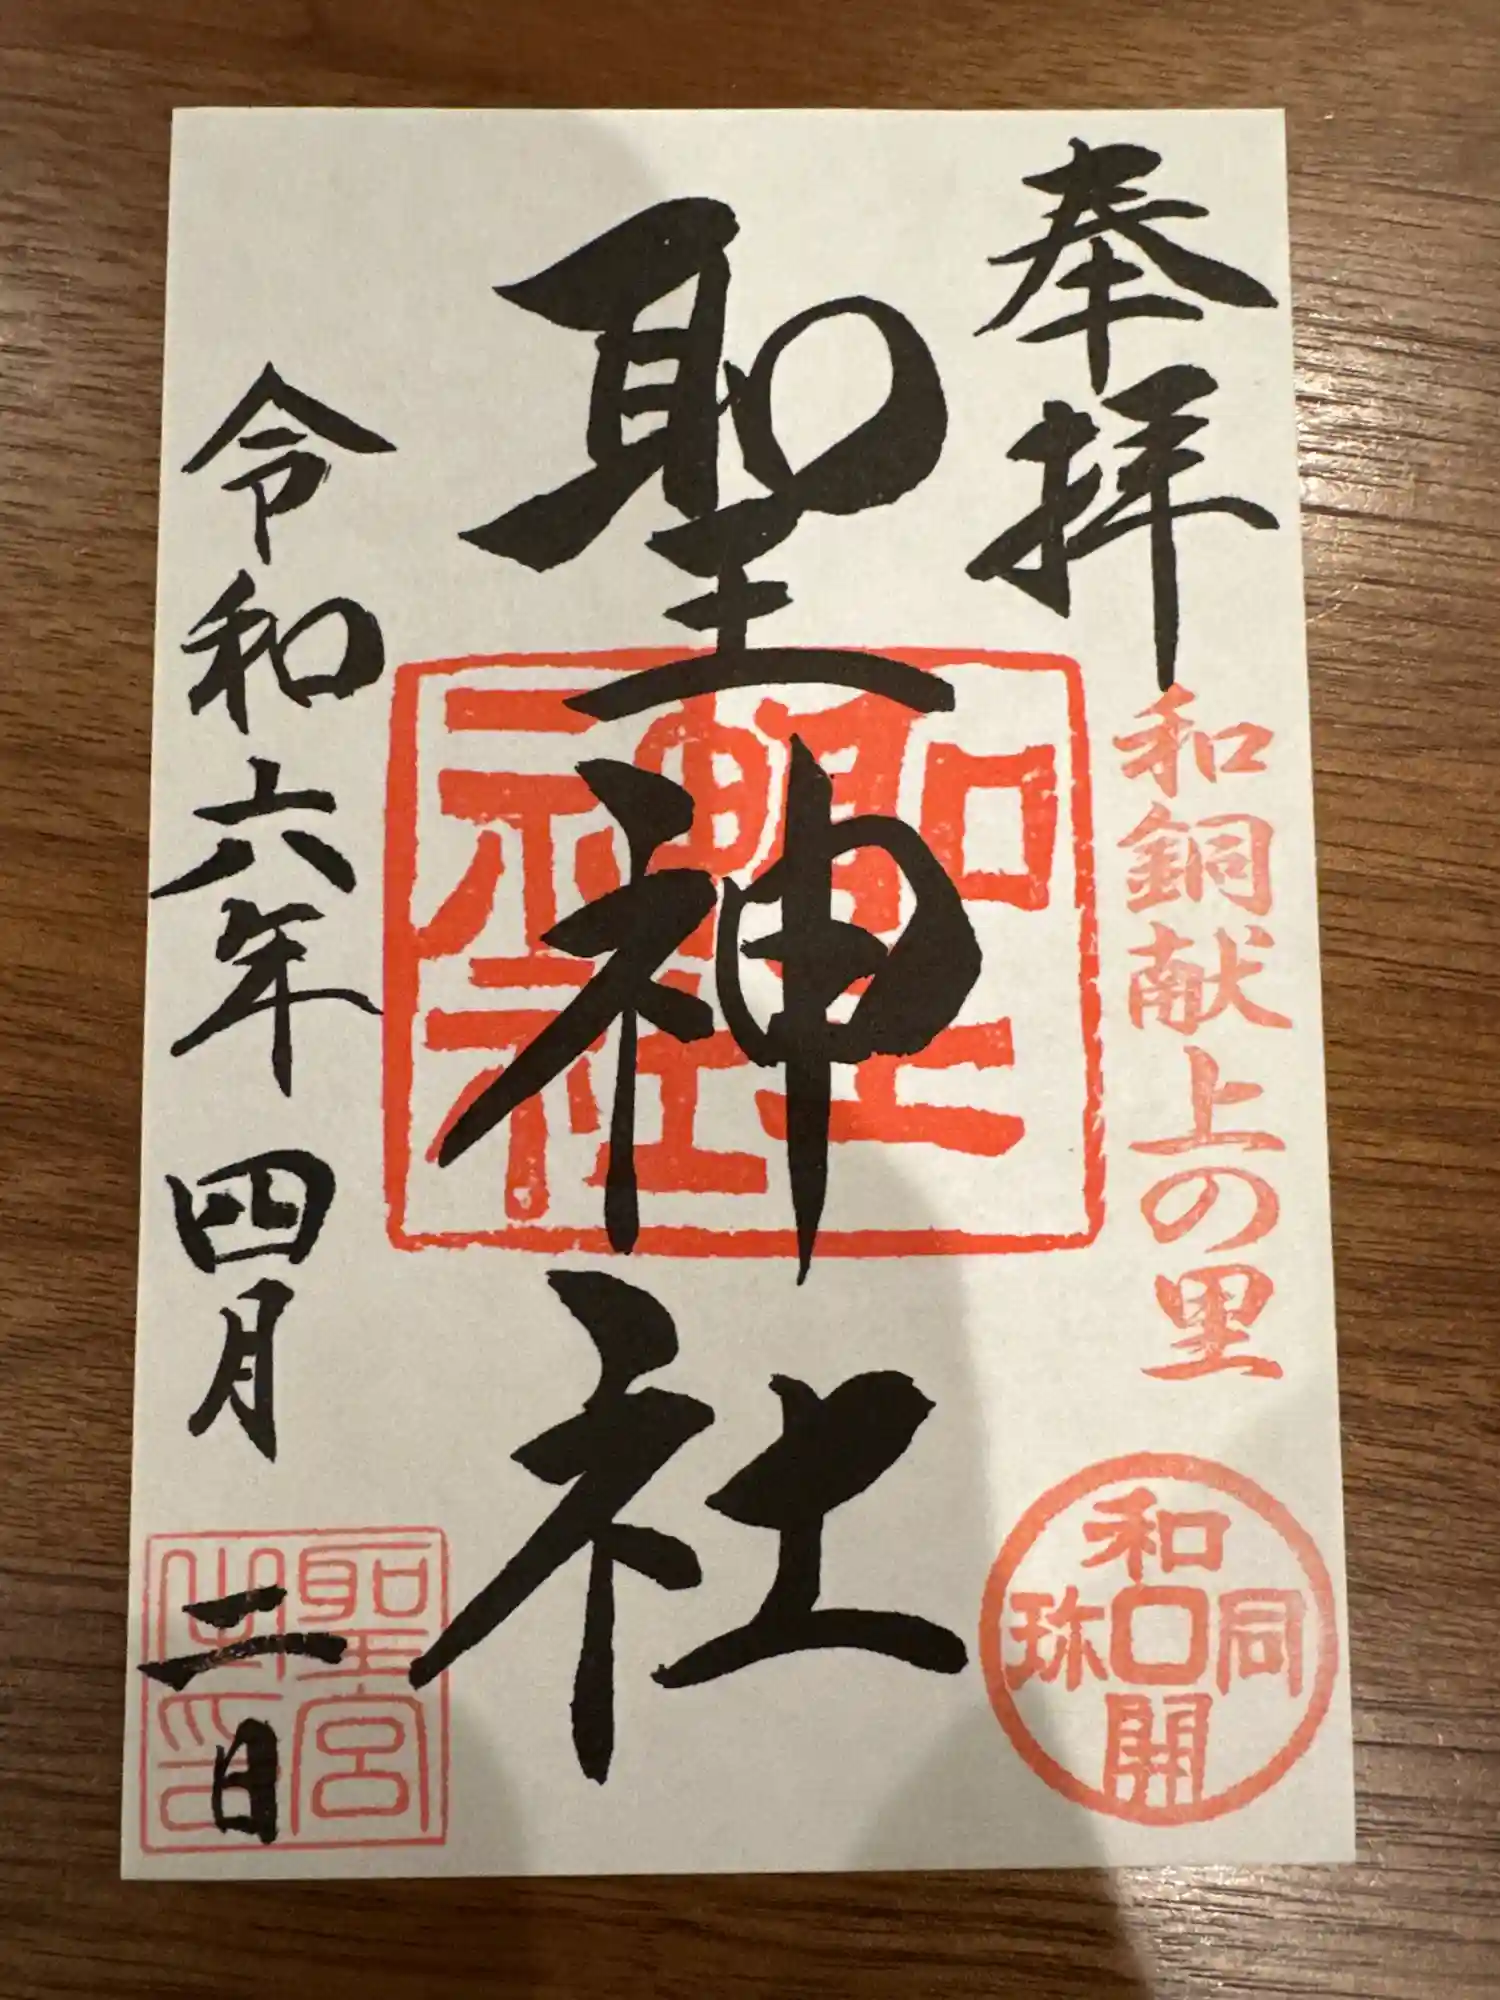 奉拝
和銅献上の里
和同開珎
聖神社
聖神社
令和六年四月二日
聖宮